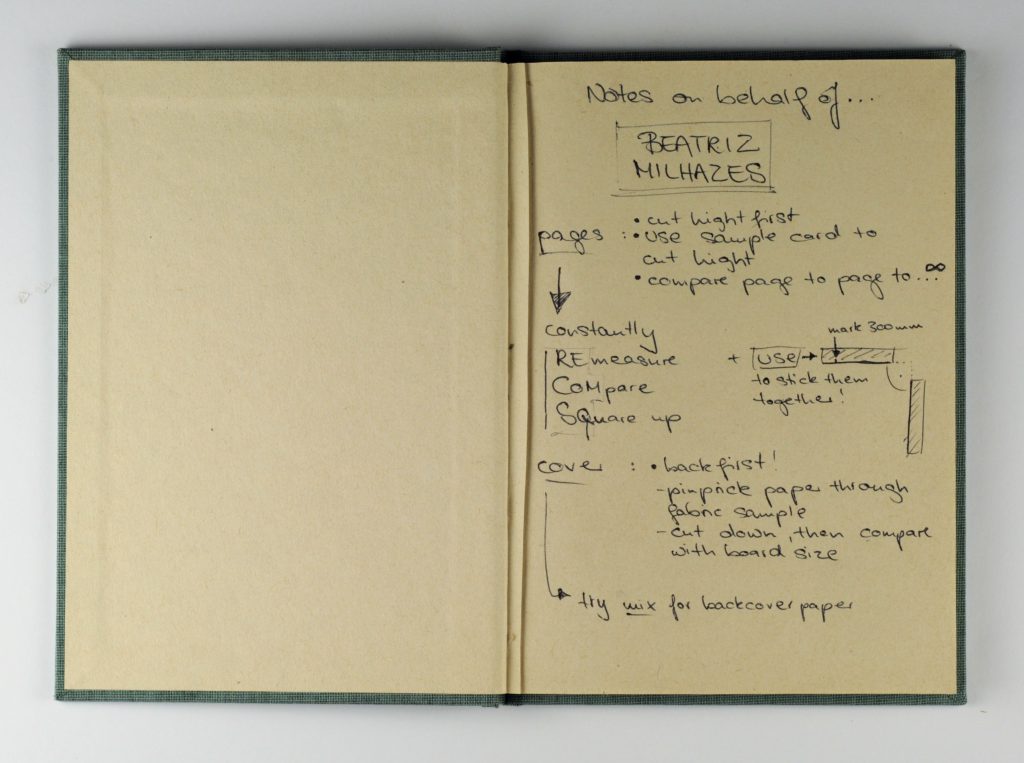 Notes on behalf of...
BEATRIZ
MILHAZES
• cut hight first
pages : • use sample card to
cut hight
• compare page to page to...∞
constantly
REmeasure
COMpare
SQuare up
mark 300mm
+ use →
to stick them
together!
cover : • back first!
- pinprick paper through
fabric sample
- cut down, then compare
with board size
try mix for backcover paper